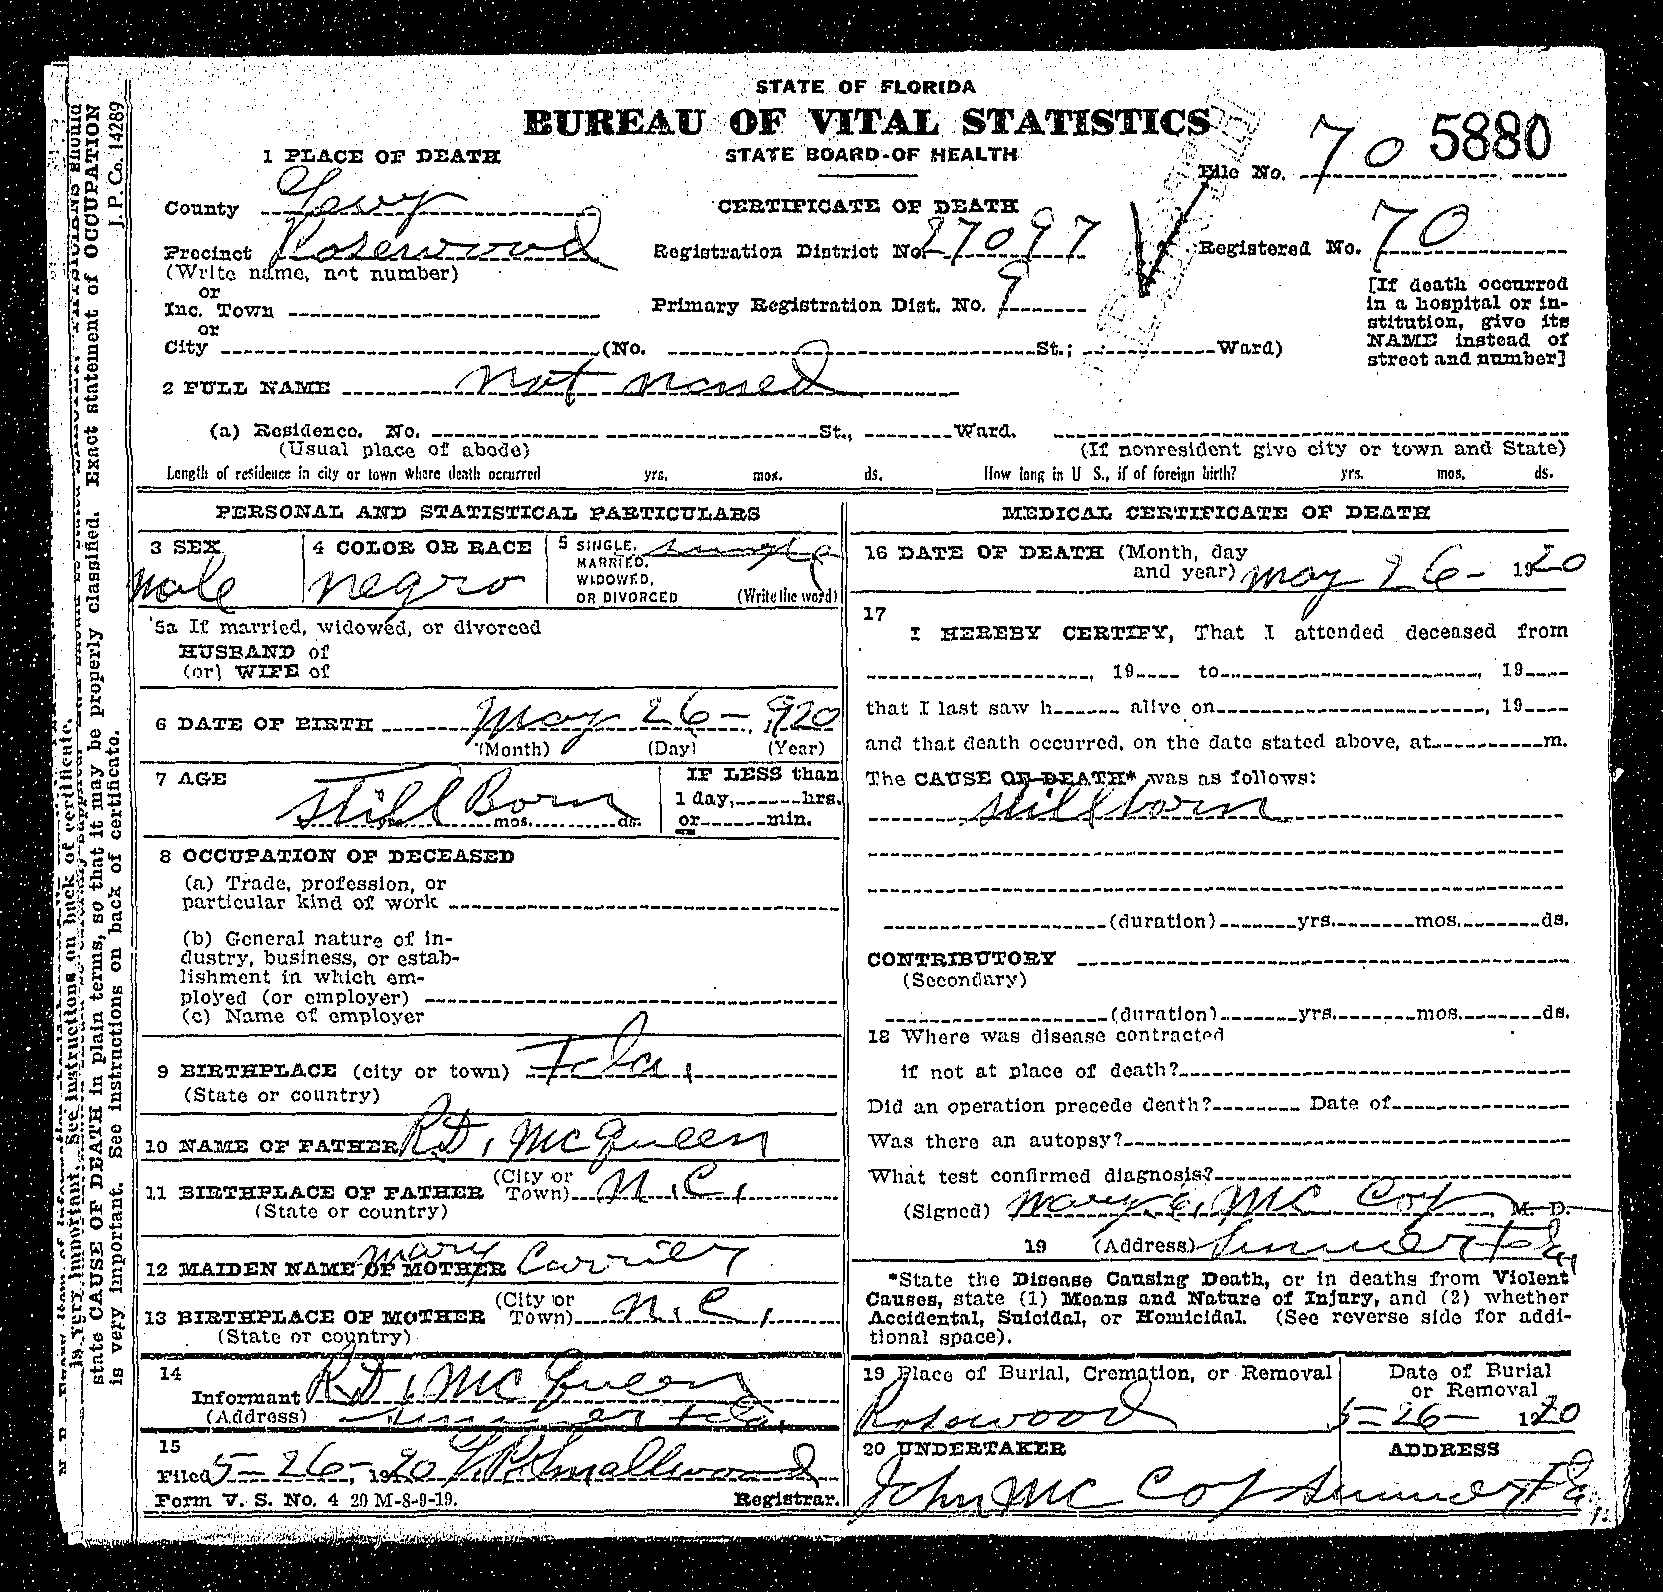 STATE OF FLORIDA
BUREAU OF VITAL STATISTICS
STATE BOARD OF HEALTH
CERTIFICATE OF DEATH
File No. 70 5880
1 PLACE OF DEATH
County Levy
Precinct Rosewood
(Write name, not number)
or
Inc. Town
or
City (No. St.; Ward)
Registration District No. 27097
Primary Registration Dist. No. 9
Registered No. 70
[If death occurred
in a hospital or in-
stitution, give its
NAME instead of
street and number]
2 FULL NAME not named
(a) Residence. No. St., Ward.
(Usual place of abode) (If nonresident give city or town and State)
Length of residence in city or town where death occurred yrs. mos. ds. How long in U S., if of foreign birth? yrs. mos. ds.
PERSONAL AND STATISTICAL PARTICULARS
3 SEX
male
4 COLOR OR RACE
negro
5 SINGLE,
MARRIED,
WIDOWED,
OR DIVORCED
single
(Write the word)
5a If married, widowed, or divorced
HUSBAND of
(or) WIFE of
6 DATE OF BIRTH May 26 - 1920
(Month) (Day) (Year)
7 AGE
Still Born
yrs. mos. ds.
IF LESS than
1 day, hrs.
or min.
8 OCCUPATION OF DECEASED
(a) Trade, profession, or
particular kind of work
(b) General nature of in-
dustry, business, or estab-
lishment in which em-
ployed (or employer)
(c) Name of employer
9 BIRTHPLACE (city or town) Fla,
(State or country)
10 NAME OF FATHER R.D, McQueen
11 BIRTHPLACE OF FATHER (City or Town) N.C,
(State or country)
12 MAIDEN NAME OF MOTHER mary Carrier
13 BIRTHPLACE OF MOTHER (City or Town) N.C,
(State or country)
14
Informant R.D, McQueen
(Address) Sumner Fla,
15
Filed 5-26-, 1920 Smallwood
Form V. S. No. 4 20 M-8-9-19. Registrar.
MEDICAL CERTIFICATE OF DEATH
16 DATE OF DEATH (Month, day
and year) May 26 - 1920
17
I HEREBY CERTIFY, That I attended deceased from
, 19 to , 19
that I last saw h alive on , 19
and that death occurred, on the date stated above, at m.
The CAUSE OF DEATH* was as follows:
stillborn
(duration) yrs. mos. ds.
CONTRIBUTORY
(Secondary)
(duration) yrs. mos. ds.
18 Where was disease contracted
if not at place of death?
Did an operation precede death? Date of
Was there an autopsy?
What test confirmed diagnosis?
(Signed) Mary E, McCoy M. D.
19 (Address) Sumner Fla,
*State the Disease Causing Death, or in deaths from Violent
Causes, state (1) Means and Nature of Injury, and (2) whether
Accidental, Suicidal, or Homicidal. (See reverse side for addi-
tional space).
19 Place of Burial, Cremation, or Removal
Rosewood
Date of Burial
or Removal
5-26- 1920
20 UNDERTAKER ADDRESS
John McCoy Sumner Fla,
state CAUSE OF DEATH in plain terms, so that it may be properly classified. Exact statement of OCCUPATION
is very important. See instructions on back of certificate.
J. P. Co. 14289